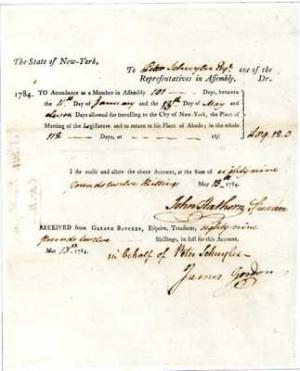 The State of New-York,
To Peter Schuyler Esqr. one of the
Representatives in Assembly, Dr.
1784. TO Attendance as a Member in Assembly 101 Days, between
the Day of January and the Day of May and
Days allowed for travelling to the City of New-York, the Place of
Meeting of the Legislature, and to return to his Place of Abode; in the whole
118 Days, at
I do certify and allow the above Account, at the Sum of eighty nine
pounds twelve Shillings May 13th 1784.
John
RECEIVED from GERARD BANCKER, Esquire, Treasurer, eighty nine
pounds twelve Shillings, in full for this Account.
May 13th 1784.
in behalf of Peter Schuyler
James Gordon